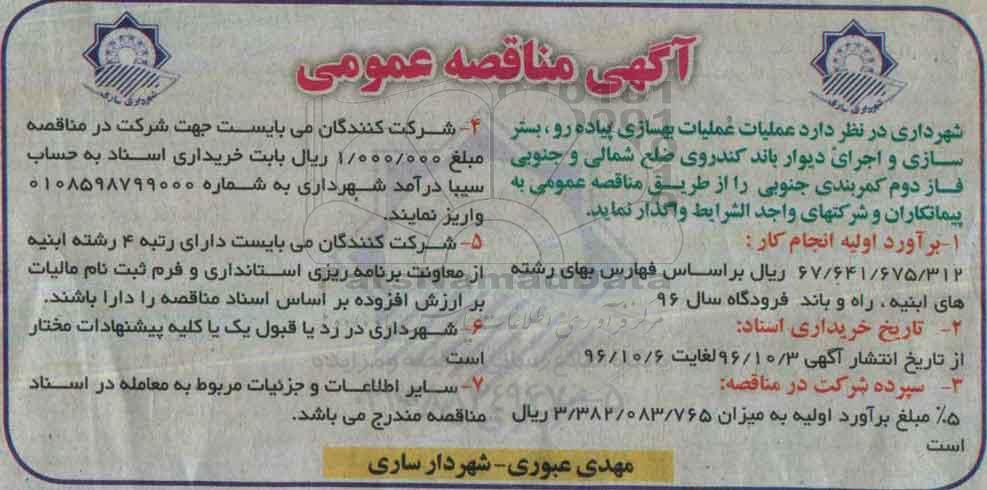 آگهی مناقصه عمومی
شهرداری ساری
شهرداری ساری
شهرداری در نظر دارد عملیات عملیات بهسازی پیاده رو ، بستر
سازی و اجرای دیوار باند کندروی ضلع شمالی و جنوبی
فاز دوم کمربندی جنوبی را از طریق مناقصه عمومی به
پیمانکاران و شرکتهای واجد الشرایط واگذار نماید.
۱-برآورد اولیه انجام کار :
۶۷/۶۴۱/۶۷۵/۳۱۲ ریال براساس فهارس بهای رشته
های ابنیه ، راه و باند فرودگاه سال ۹۶
۲- تاریخ خریداری اسناد:
از تاریخ انتشار آگهی ۹۶/۱۰/۳ لغایت ۹۶/۱۰/۶
۳- سپرده شرکت در مناقصه:
۵٪ مبلغ برآورد اولیه به میزان ۳/۳۸۲/۰۸۳/۷۶۵ ریال
است
۴- شرکت کنندگان می بایست جهت شرکت در مناقصه
مبلغ ۱/۰۰۰/۰۰۰ ریال بابت خریداری اسناد به حساب
سیبا درآمد شهرداری به شماره ۰۱۰۸۵۹۸۷۹۹۰۰۰
واریز نمایند.
۵- شرکت کنندگان می بایست دارای رتبه ۴ رشته ابنیه
از معاونت برنامه ریزی استانداری و فرم ثبت نام مالیات
بر ارزش افزوده بر اساس اسناد مناقصه را دارا باشند.
۶- شهرداری در رد یا قبول یک یا کلیه پیشنهادات مختار
است
۷- سایر اطلاعات و جزئیات مربوط به معامله در اسناد
مناقصه مندرج می باشد.
مهدی عبوری- شهردار ساری